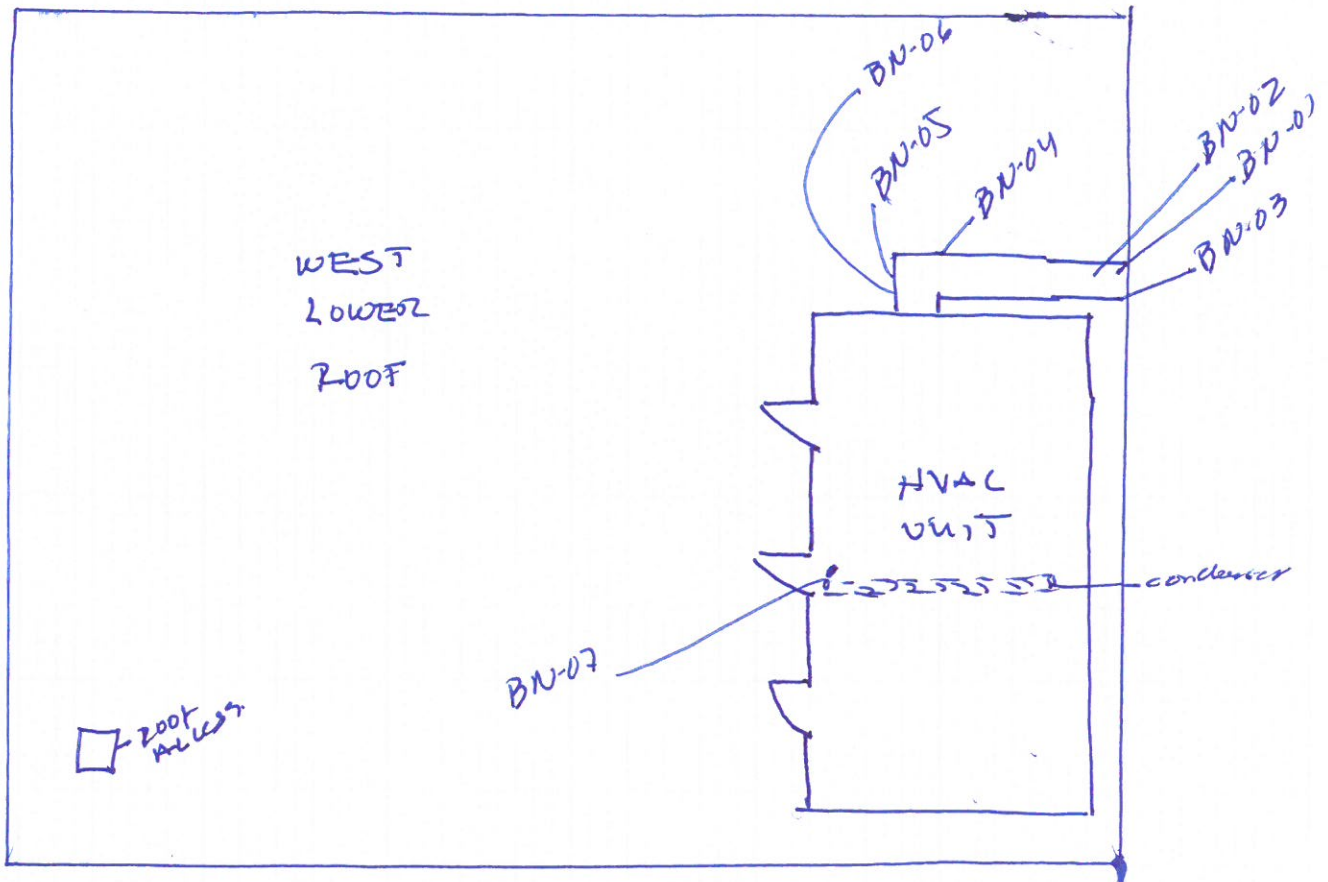 BN-06
BN-05
BN-04
BN-02
BN-01
BN-03
WEST
LOWER
ROOF
HVAC
UNIT
condenser
BN-07
ROOF
ACCESS